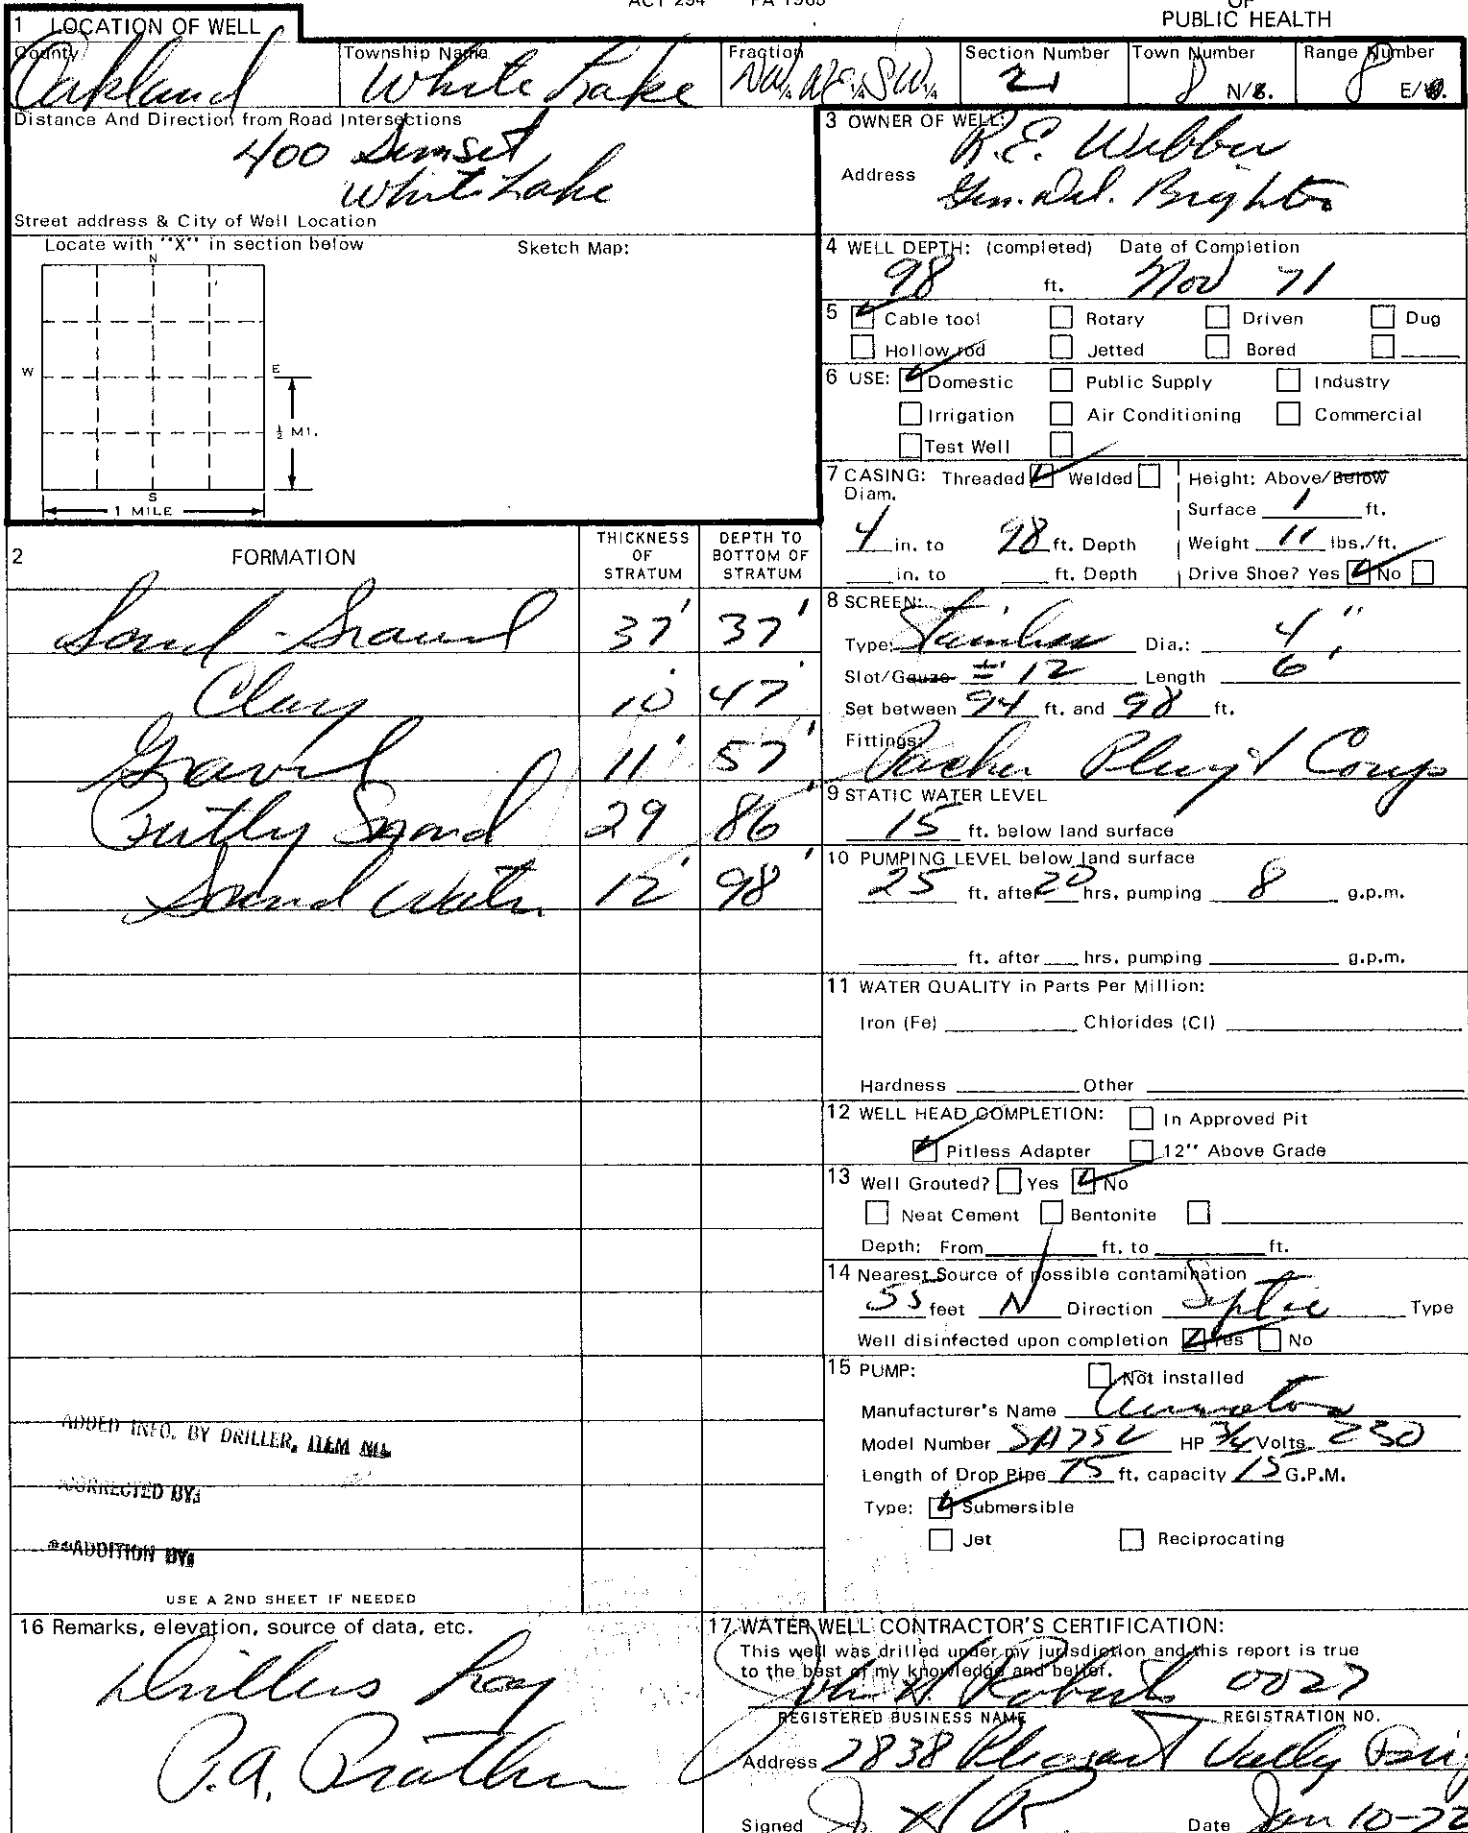 ACT 294 PA 1965
OF
PUBLIC HEALTH
1 LOCATION OF WELL
County Township Name Fraction Section Number Town Number Range Number
Oakland White Lake NW¼ NE¼ SW¼ 21 8 N/S. 8 E/W.
Distance And Direction from Road Intersections
400
White Lake
Street address & City of Well Location
Locate with "X" in section below Sketch Map:
N
W E
½ MI.
S
1 MILE
3 OWNER OF WELL:
R.E. Webber
Address Gen. Del. Brighton
4 WELL DEPTH: (completed) Date of Completion
98 ft. Nov 71
5 Cable tool Rotary Driven Dug
Hollow rod Jetted Bored
6 USE: Domestic Public Supply Industry
Irrigation Air Conditioning Commercial
Test Well
7 CASING: Threaded Welded Height: Above/Below
Diam. Surface 1 ft.
4 in. to 98 ft. Depth Weight 11 lbs./ft.
in. to ft. Depth Drive Shoe? Yes No
2 FORMATION THICKNESS OF STRATUM DEPTH TO BOTTOM OF STRATUM
Sand - Gravel 37' 37'
Clay 10' 47'
Gravel 11' 57'
Sand 29 86'
Sand Water 12' 98'
8 SCREEN:
Type: Stainless Dia.: 4"
Slot/Gauze # 12 Length 6'
Set between 94 ft. and 98 ft.
Fittings:
Packer Plug & Coup
9 STATIC WATER LEVEL
15 ft. below land surface
10 PUMPING LEVEL below land surface
25 ft. after 20 hrs. pumping 8 g.p.m.
ft. after hrs. pumping g.p.m.
11 WATER QUALITY in Parts Per Million:
Iron (Fe) Chlorides (Cl)
Hardness Other
12 WELL HEAD COMPLETION: In Approved Pit
Pitless Adapter 12" Above Grade
13 Well Grouted? Yes No
Neat Cement Bentonite
Depth: From ft. to ft.
14 Nearest Source of possible contamination
55 feet N Direction Septic Type
Well disinfected upon completion Yes No
15 PUMP: Not installed
Manufacturer's Name
Model Number SA75L HP 3/4 Volts 230
Length of Drop Pipe 75 ft. capacity 15 G.P.M.
Type: Submersible
Jet Reciprocating
ADDED INFO. BY DRILLER, ITEM NO.
CORRECTED BY:
**ADDITION BY:
USE A 2ND SHEET IF NEEDED
16 Remarks, elevation, source of data, etc.
Drillers Log
P.A. Prather
17 WATER WELL CONTRACTOR'S CERTIFICATION:
This well was drilled under my jurisdiction and this report is true
to the best of my knowledge and belief.
John H. Roberts 0027
REGISTERED BUSINESS NAME REGISTRATION NO.
Address 2838 Pleasant Vally Brig
Signed J H R Date Jan 10-72